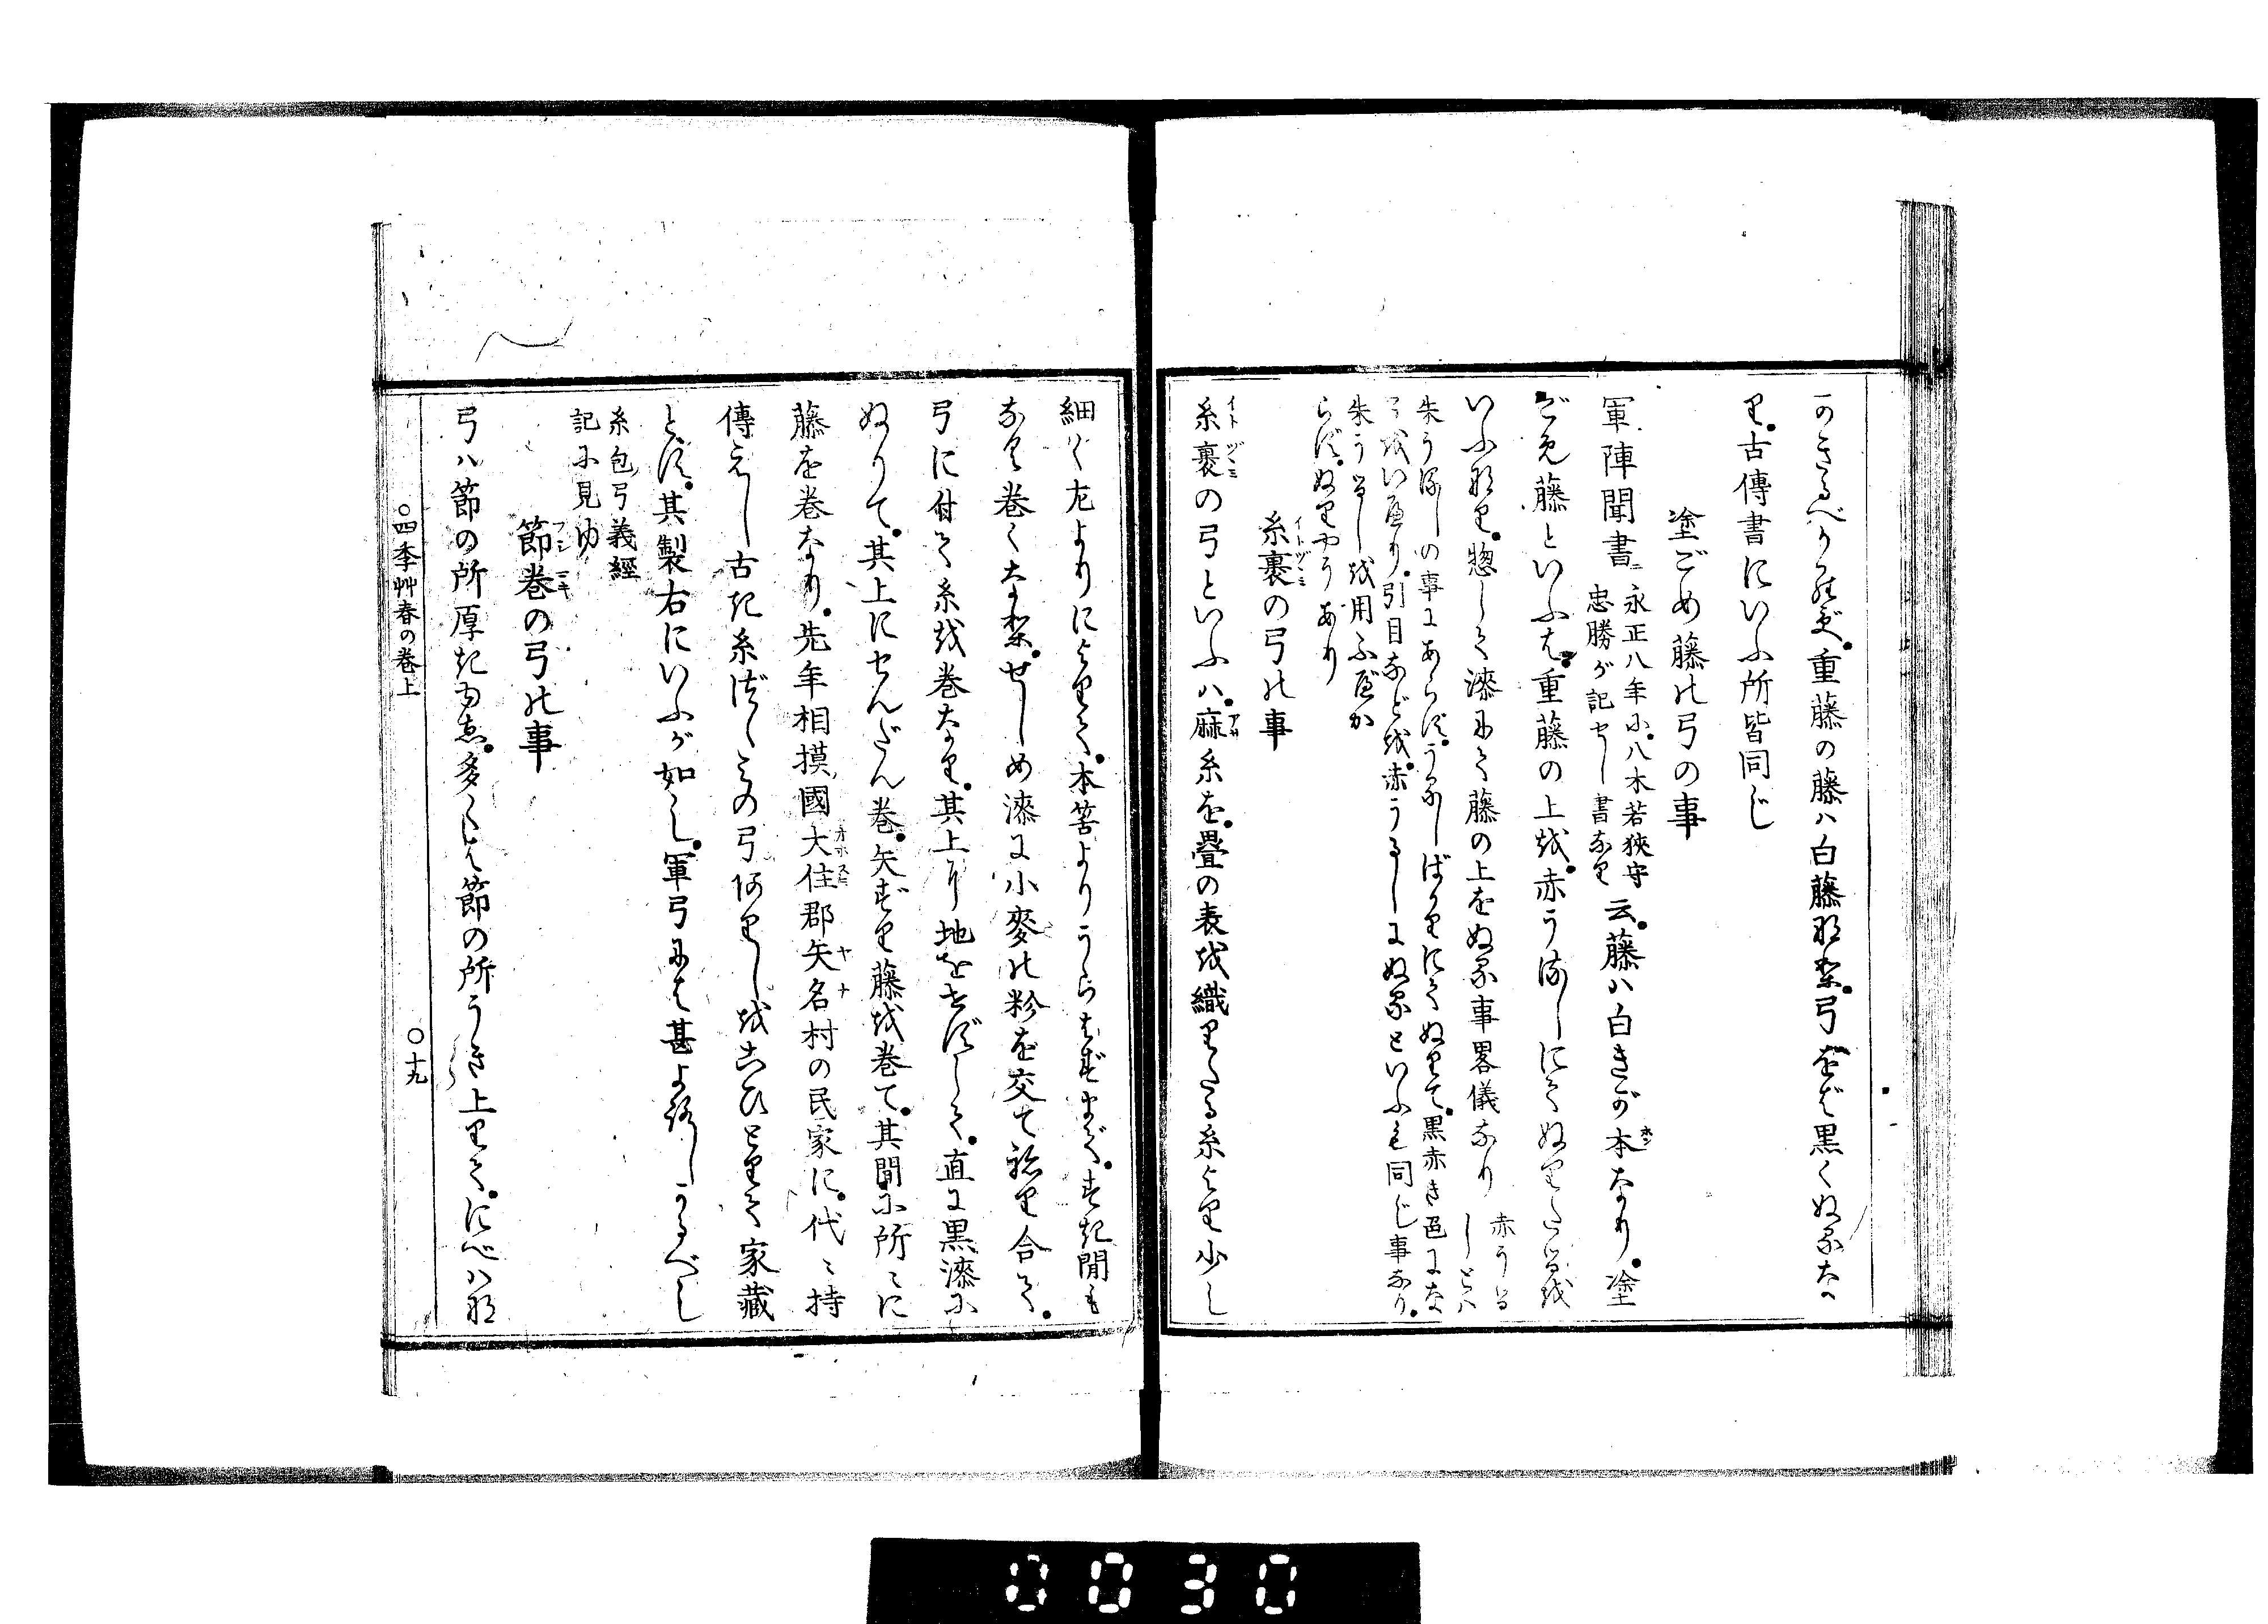 のきるべからず。重藤の藤ハ白藤なり。弓をば黒くぬるな
り。古傳書にいふ所皆同じ
塗ごめ藤の弓の事
軍陣聞書 永正八年に。八木若狭守
忠勝が記せし書なり 云。藤ハ白きが本なり。塗
ごめ藤といふは。重藤の上を。赤うるしにてぬりたるを
いふなり。惣して漆にて藤の上をぬる事畧儀なり 赤うる
しとハ
朱うるしの事にあらず。うるしばかりにてぬりて。黒赤き色にな
るをいへり。引目などを。赤うるしにぬるといふも同じ事なり。
朱うるしを用ふべか
らず。ぬりやうあり
糸裹の弓の事
イトヅヽミ
糸裹の弓といふハ。麻糸を。畳の表を織りたる糸より少し
イトヅヽミ
細く左よりによりて。本筈よりうらはずまで。すき間も
なく巻くなり。せしめ漆に小麥の粉を交て練り合て。
弓に付て糸を巻なり。其上に地をせずして。直に黒漆に
ぬりて。其上にせんだん巻。矢ずり藤を巻て。其間に所々に
藤を巻なり。先年相摸國大住郡矢名村の民家に。代々持
ヤナ
傳えし古き糸づゝみの弓ありしを古ひとりて家藏
とす。其製右にいふが如し。軍弓には甚よろしかるべし
糸包弓義經
記に見ゆ
節巻の弓の事
フシマキ
弓ハ節の所厚きゆゑ。多くは節の所うき上りて。にべハな
○四季艸春の巻上
○十九
0030